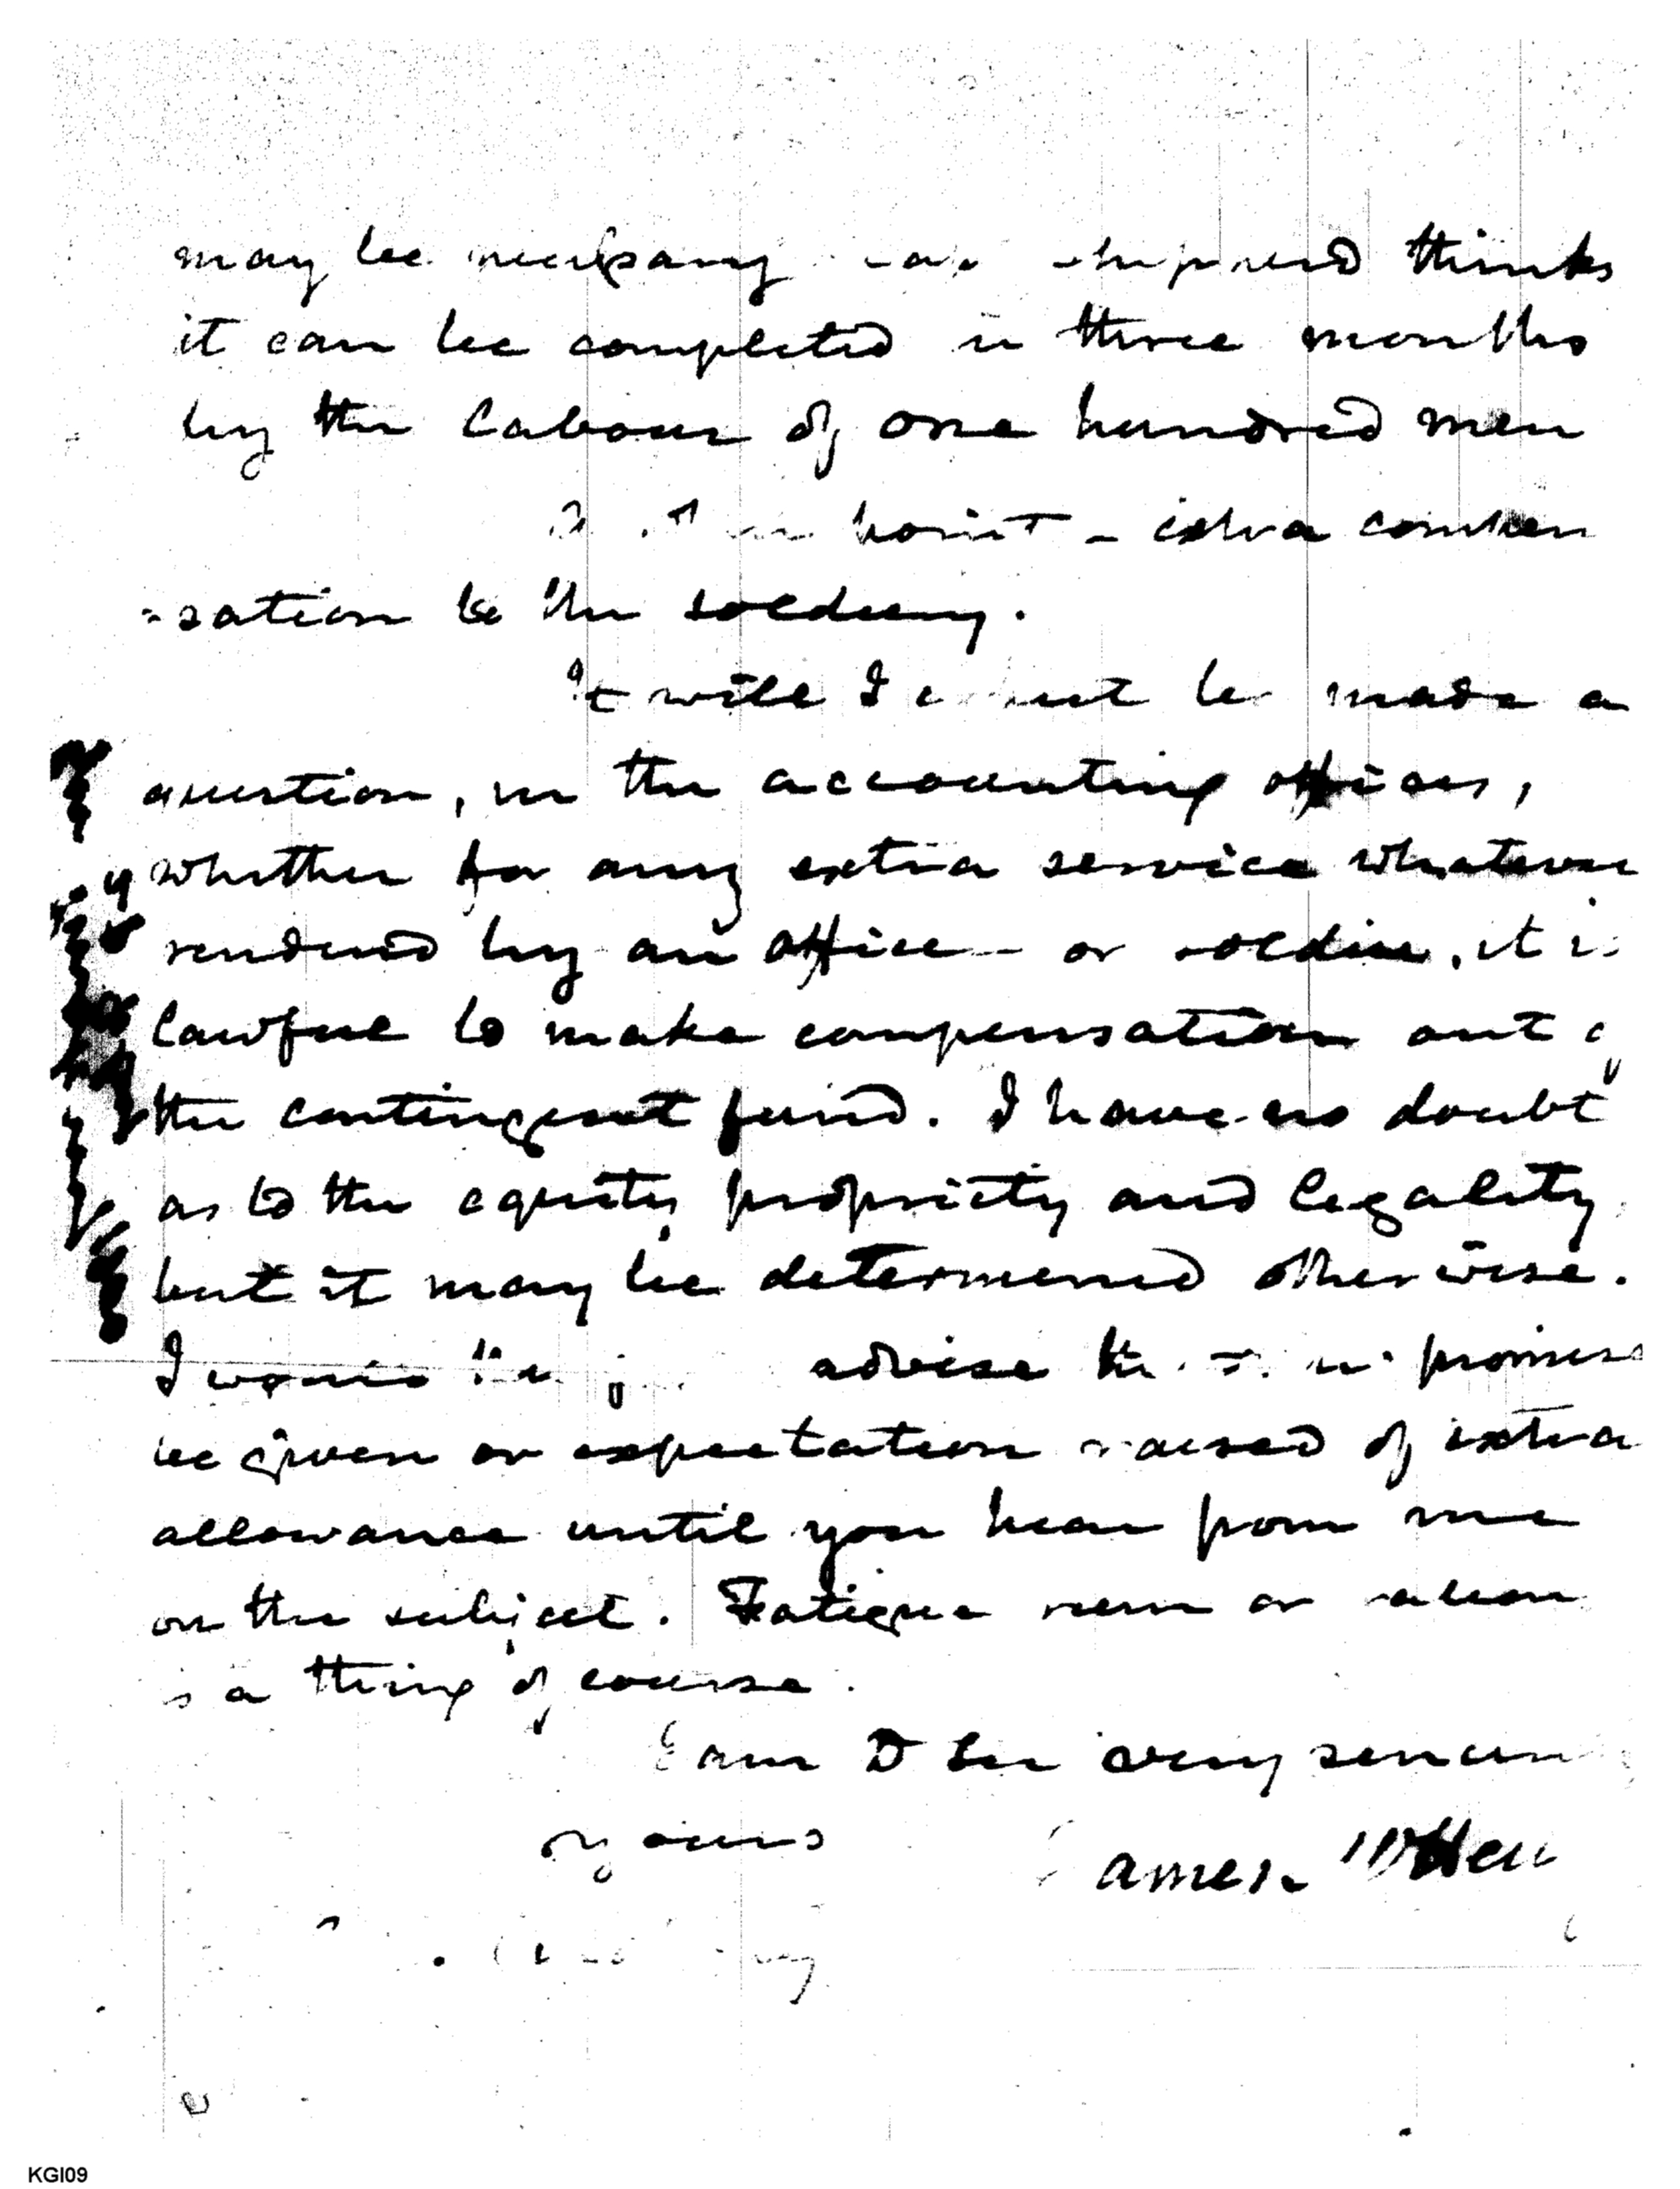 may be necessary thinks
it can be completed in three months
by the labour of one hundred men
point - extra compen
=sation to the soldiery.
It will I be made a
question, in the accounting offices,
whether for any extra service whatever
rendered by an officer or soldier, it is
lawful to make compensation out of
the contingent fund. I have no doubt
as to the equity, propriety and legality
but it may be determined otherwise.
I would advise that no promise
be given or expectation raised of extra
allowance until you hear from me
on the subject. Fatigue rum or
is a thing of course.
I am to be very sincerely
yours James
KGI09